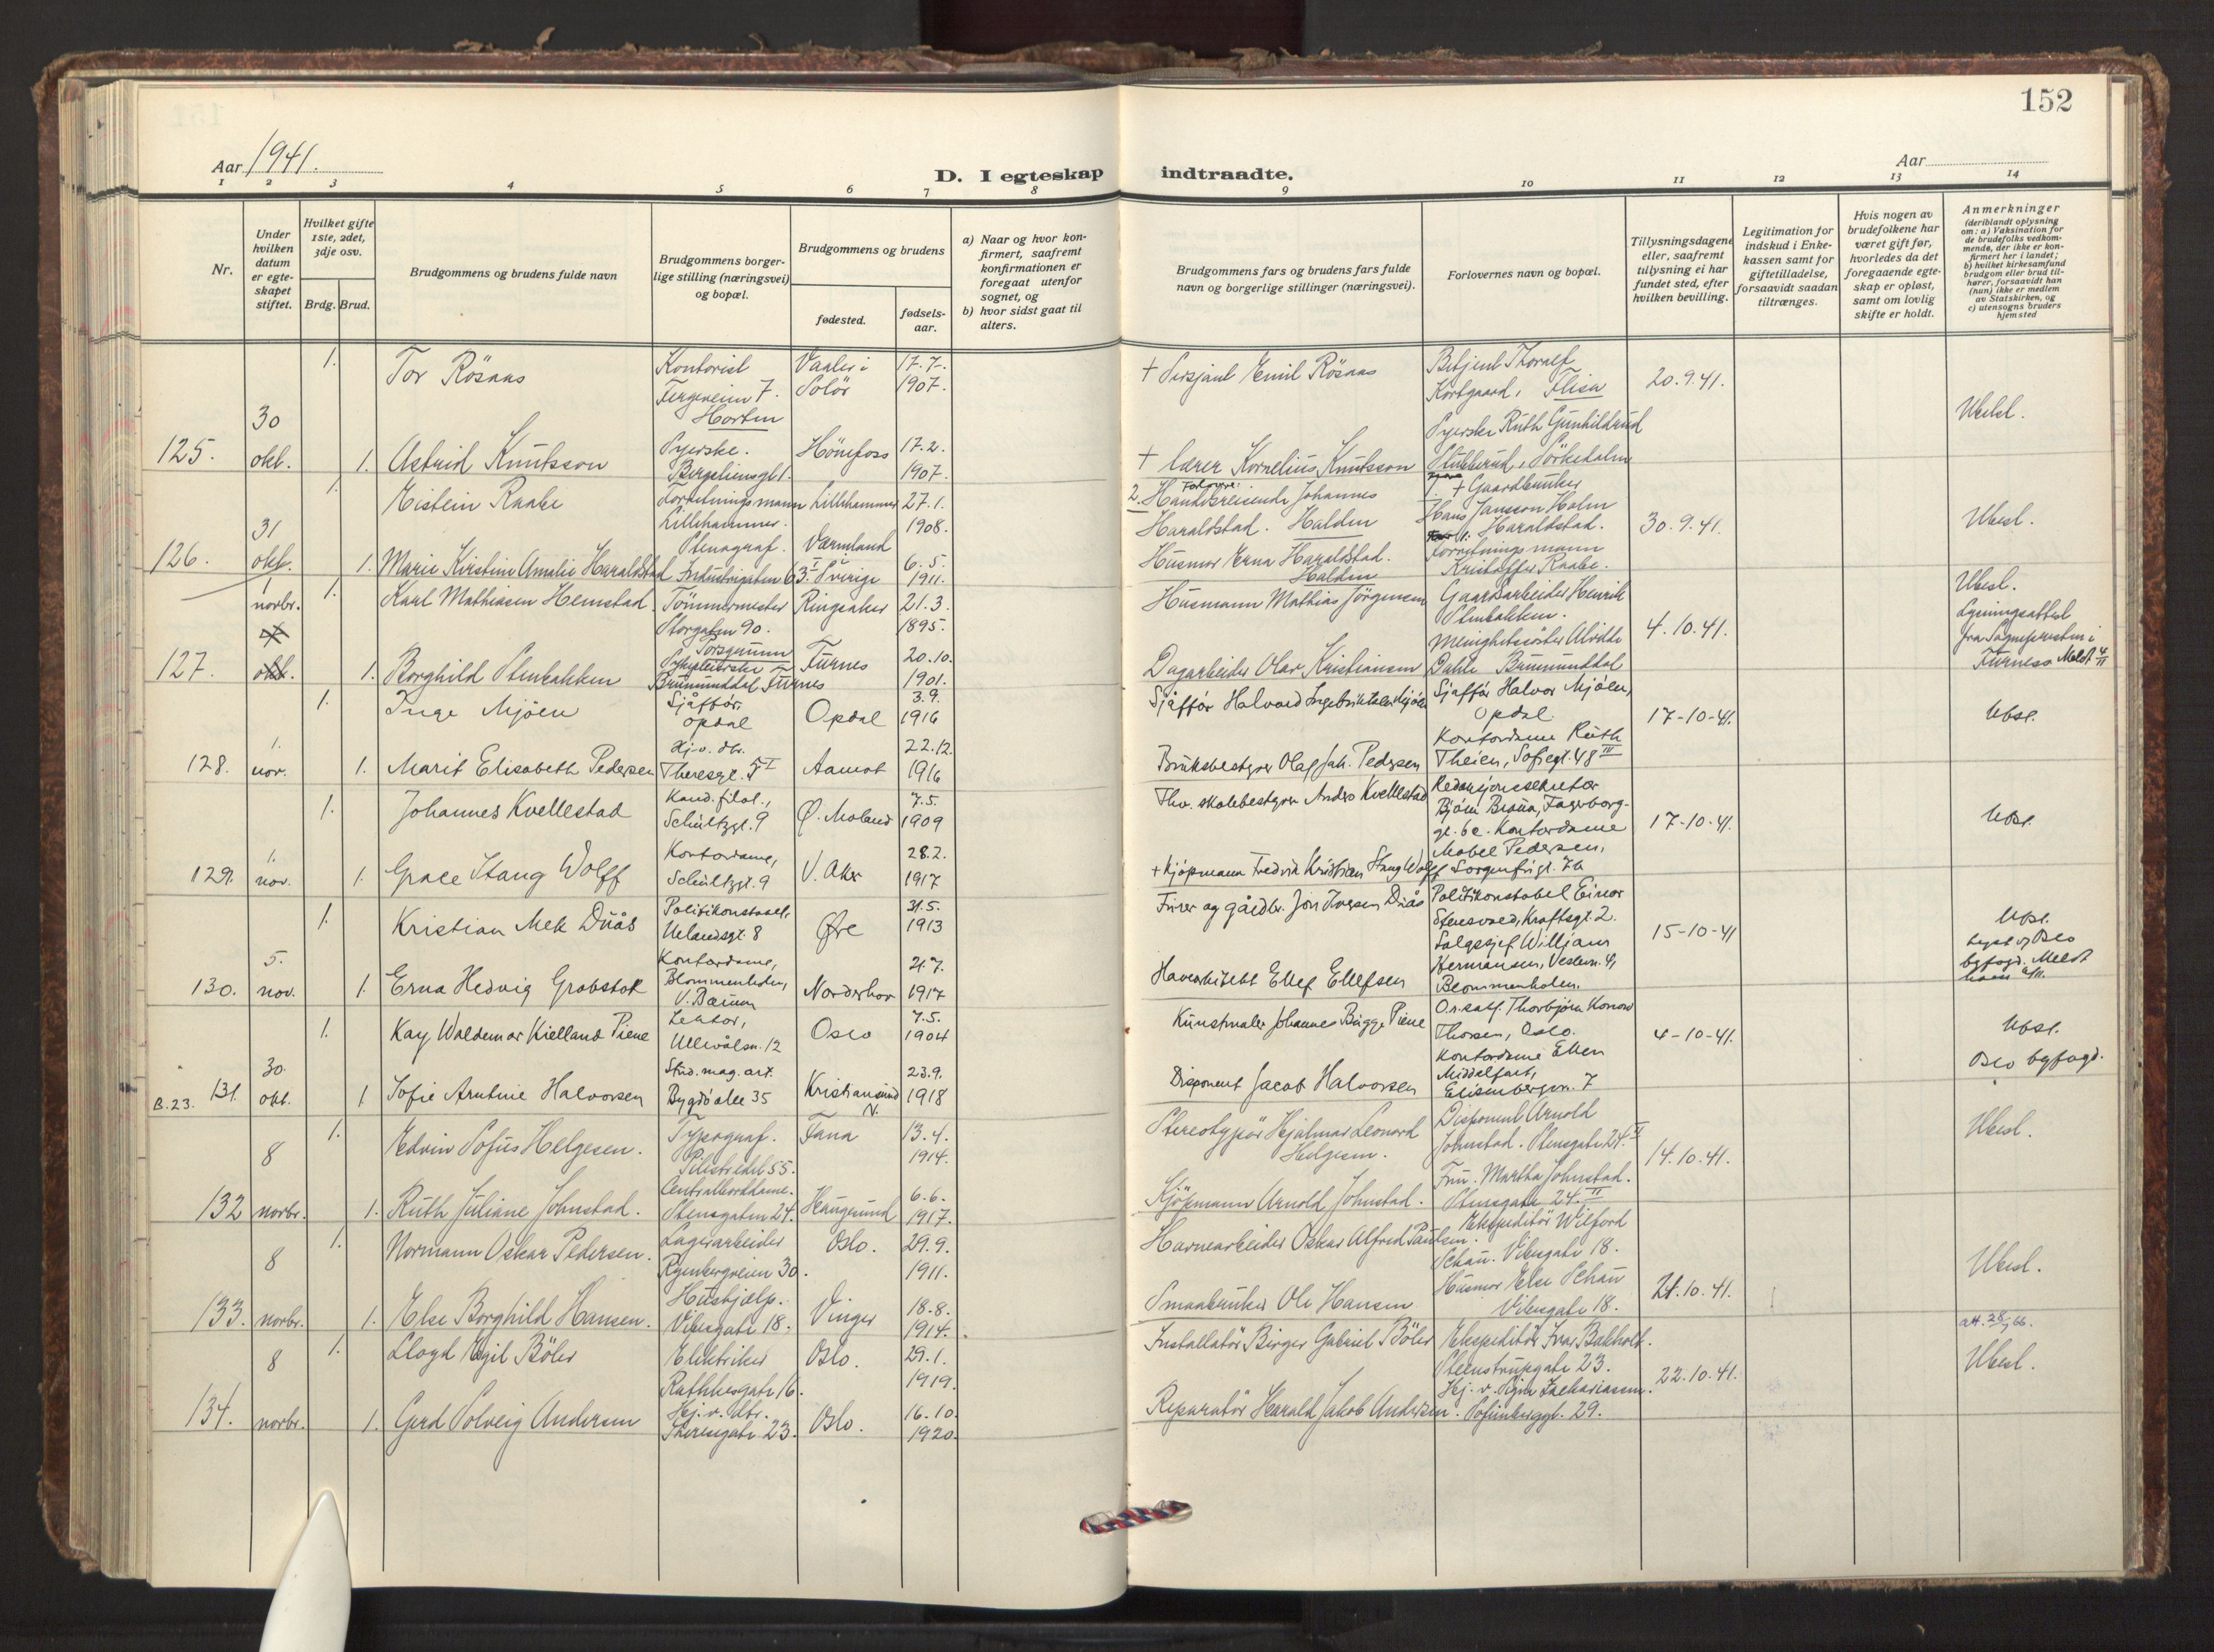 152
Aar 1941.
D. I egteskap indtraadte.
Aar
1 2 3 4 5 6 7 8 9 10 11 12 13 14
Nr.
Under hvilken datum er egte-skapet stiftet.
Hvilket gifte 1ste, 2det, 3dje osv.
Brdg. Brud.
Brudgommens og brudens fulde navn
Brudgommens borger-lige stilling (næringsvei) og bopæl.
Brudgommens og brudens
fødested.
fødsels-aar.
a) Naar og hvor kon-firmert, saafremt konfirmationen er foregaat utenfor sognet, og
b) hvor sidst gaat til alters.
Brudgommens fars og brudens fars fulde navn og borgerlige stillinger (næringsvei).
Forlovernes navn og bopæl.
Tillysningsdagene eller, saafremt tillysning ei har fundet sted, efter hvilken bevilling.
Legitimation for indskud i Enke-kassen samt for giftetilladelse, forsaavidt saadan tiltrænges.
Hvis nogen av brudefolkene har været gift før, hvorledes da det foregaaende egte-skap er opløst, samt om lovlig skifte er holdt.
Anmerkninger
(deriblandt oplysning om: a) Vaksination for de brudefolks vedkom-mende, der ikke er kon-firmert her i landet; b) hvilket kirkesamfund brudgom eller brud til-hører, forsaavidt han (hun) ikke er medlem av Statskirken, og c) utensogns bruders hjemsted
125. 30 okt.
1. Tor Rösaas
Kontorist
Horten
Vaaler i Solör
17.7. 1907.
+ Sersjant Emil Rösaas
Betjent Thoralf
Flisa
20.9.41.
Ubesl.
1. Astrid Knutsson
Syerske.
Hönefoss
17.2. 1907.
+ Lærer Kornelius Knutsson
Syerske Ruth Gunhildrud
126. 31 okt.
1. Eistein Raabe
Forretningsmann
Lillehammer.
Lillehammer
27.1. 1908.
2. Handelsreisende Johannes
Haraldstad. Halden
+ Gaardbruker
Hans Jansson Holm
Haraldstad.
30.9.41.
Ubesl.
1. Marie Kirstine Amalie Haraldstad
Stenograf.
Industrigaten 63 I
Værmland
Sverige
6.5. 1911.
Husmor Erna Haraldstad.
Halden
Forretningsmann
Kristoffer Raabe.
127. 1 novbr.
okt.
1. Karl Mathiasen Hemstad
Tömmermester
Storgaten 90.
Porsgrunn
Ringsaker
21.3. 1895.
Husmann Mathias Jörgensen
Gaardsarbeider Henrik
Stenbakken.
4.10.41.
Ubesl.
Lysningsattest
fra Sognepresten i
Furnes Meldt 4/11
1. Borghild Stenbakken
Sykepleierske
Brumunddal Furnes
Furnes
20.10. 1901.
Dagarbeider Olav Kristiansen
Menighetssöster Alvilde
Dahle Brumunddal
128. 1. nov.
1. Inge Mjöen
Sjåffør, Opdal
Opdal
3.9. 1916
Sjåffør Halvard Ingebriktsen Mjöen
Sjåffør Halvor Mjöen,
Opdal
17-10-41.
Ubsl.
1. Marit Elisabeth Pedersen
Hj.v. dtr.
Aamot
22.12. 1916
Bruksbestyrer Olaf Joh. Pedersen
Kontordame Ruth
Theien, Sofiegt. 48 III
129. 1. nov.
1. Johannes Kvellestad
Kand. filol.,
Schultzgt. 9
Ø. Moland
7.5. 1909
Fhv. skolebestyrer Anders Kvellestad
Redaksjonssekretær
Bjørn Braua, Fagerborg-
gt. 6 c. Kontordame
17-10-41.
Ubsl.
1. Grace Stang Wolff
Kontordame,
Schultzgt. 9
V. Aker
28.2. 1917
+ Kjøpmann Fredrik Kristian Stang Wolff
Mabel Pedersen,
Sorgenfrigt. 7b
130. 5. nov.
1. Kristian Mek Duås
Politikonstabel,
Uelandsgt. 8
Øre
31.5. 1913
Furer og gårdbr. Jon Iversen Duås
Politikonstabel Einar
Stensvoed, Kraftsgt. 2.
15-10-41
Ubsl.
lyst v/ Oslo
byfogd. Meldt
1. Erna Hedvig Grobstok
Kontordame,
Blommenholm,
V. Bærum
Norderhov
21.7. 1917
Havearkitekt Ellef Ellefsen
Salgssjef Willjam
Hermansen, Vesterv. 4,
Blommenholm.
B.23. 131. 30. okt.
1. Kay Waldemar Kielland Piene
Lektor,
Ullevålsv. 12
Oslo
7.5. 1904
Kunstmaler Johannes Bugge Piene
O.r.satf. Thorbjørn Konow
Thorsen, Oslo.
4-10-41.
Ubsl.
Oslo byfogd.
1 Sofie Arntine Halvorsen
Stud. mag. art.
Bygdö alle 35
Kristiansund N.
23.9. 1918
Disponent Jacob Halvorsen
Kontordame Ellen
Middelfart,
Elisenbergvn. 7
132 8 novbr.
1. Edvin Sofus Helgesen.
Typograf.
Pilestredet 55.
Tana
13.4. 1914.
Stereotypör Hjalmar Leonard
Helgesen.
Disponent Arnold
Johnstad. Stensgate 24. II
14.10.41.
Ubesl.
1. Ruth Juliane Johnstad.
Centralborddame.
Stensgaten 24.
Haugesund
6.6. 1917.
Kjöpmann Arnold Johnstad.
Fru. Martha Johnstad.
Stensgate 24. II
133. 8 novbr.
1. Normann Oskar Pedersen.
Lagerarbeider
Ryenbergveien 30.
Oslo.
29.9. 1911.
Havnearbeider Oskar Alfred Paulsen.
Ekspeditör Wilford
Schau. Vibesgate 18.
21.10.41.
Ubesl.
1. Else Borghild Hansen.
Hushjelp.
Vibesgate 18.
Vinger
18.8. 1914.
Smaabruker Ole Hansen
Husmor Else Schau
Vibesgate 18.
134. 8 novbr.
1. Lloyd Egil Böler
Elektriker
Rathkesgate 16.
Oslo.
29.1. 1919.
Installatör Birger Gabriel Böler
Ekspeditör Ivar Bakholt.
Steenstrupgate 23.
22.10.41.
att. 28/5 66.
Ubesl.
1. Gerd Solveig Andersen
Hj. v. dtr.
Theresgate 23.
Oslo.
16.10. 1920.
Reparatör Harald Jakob Andersen.
Hj. v. Signe Zachariassen.
Sofienberggt. 29.